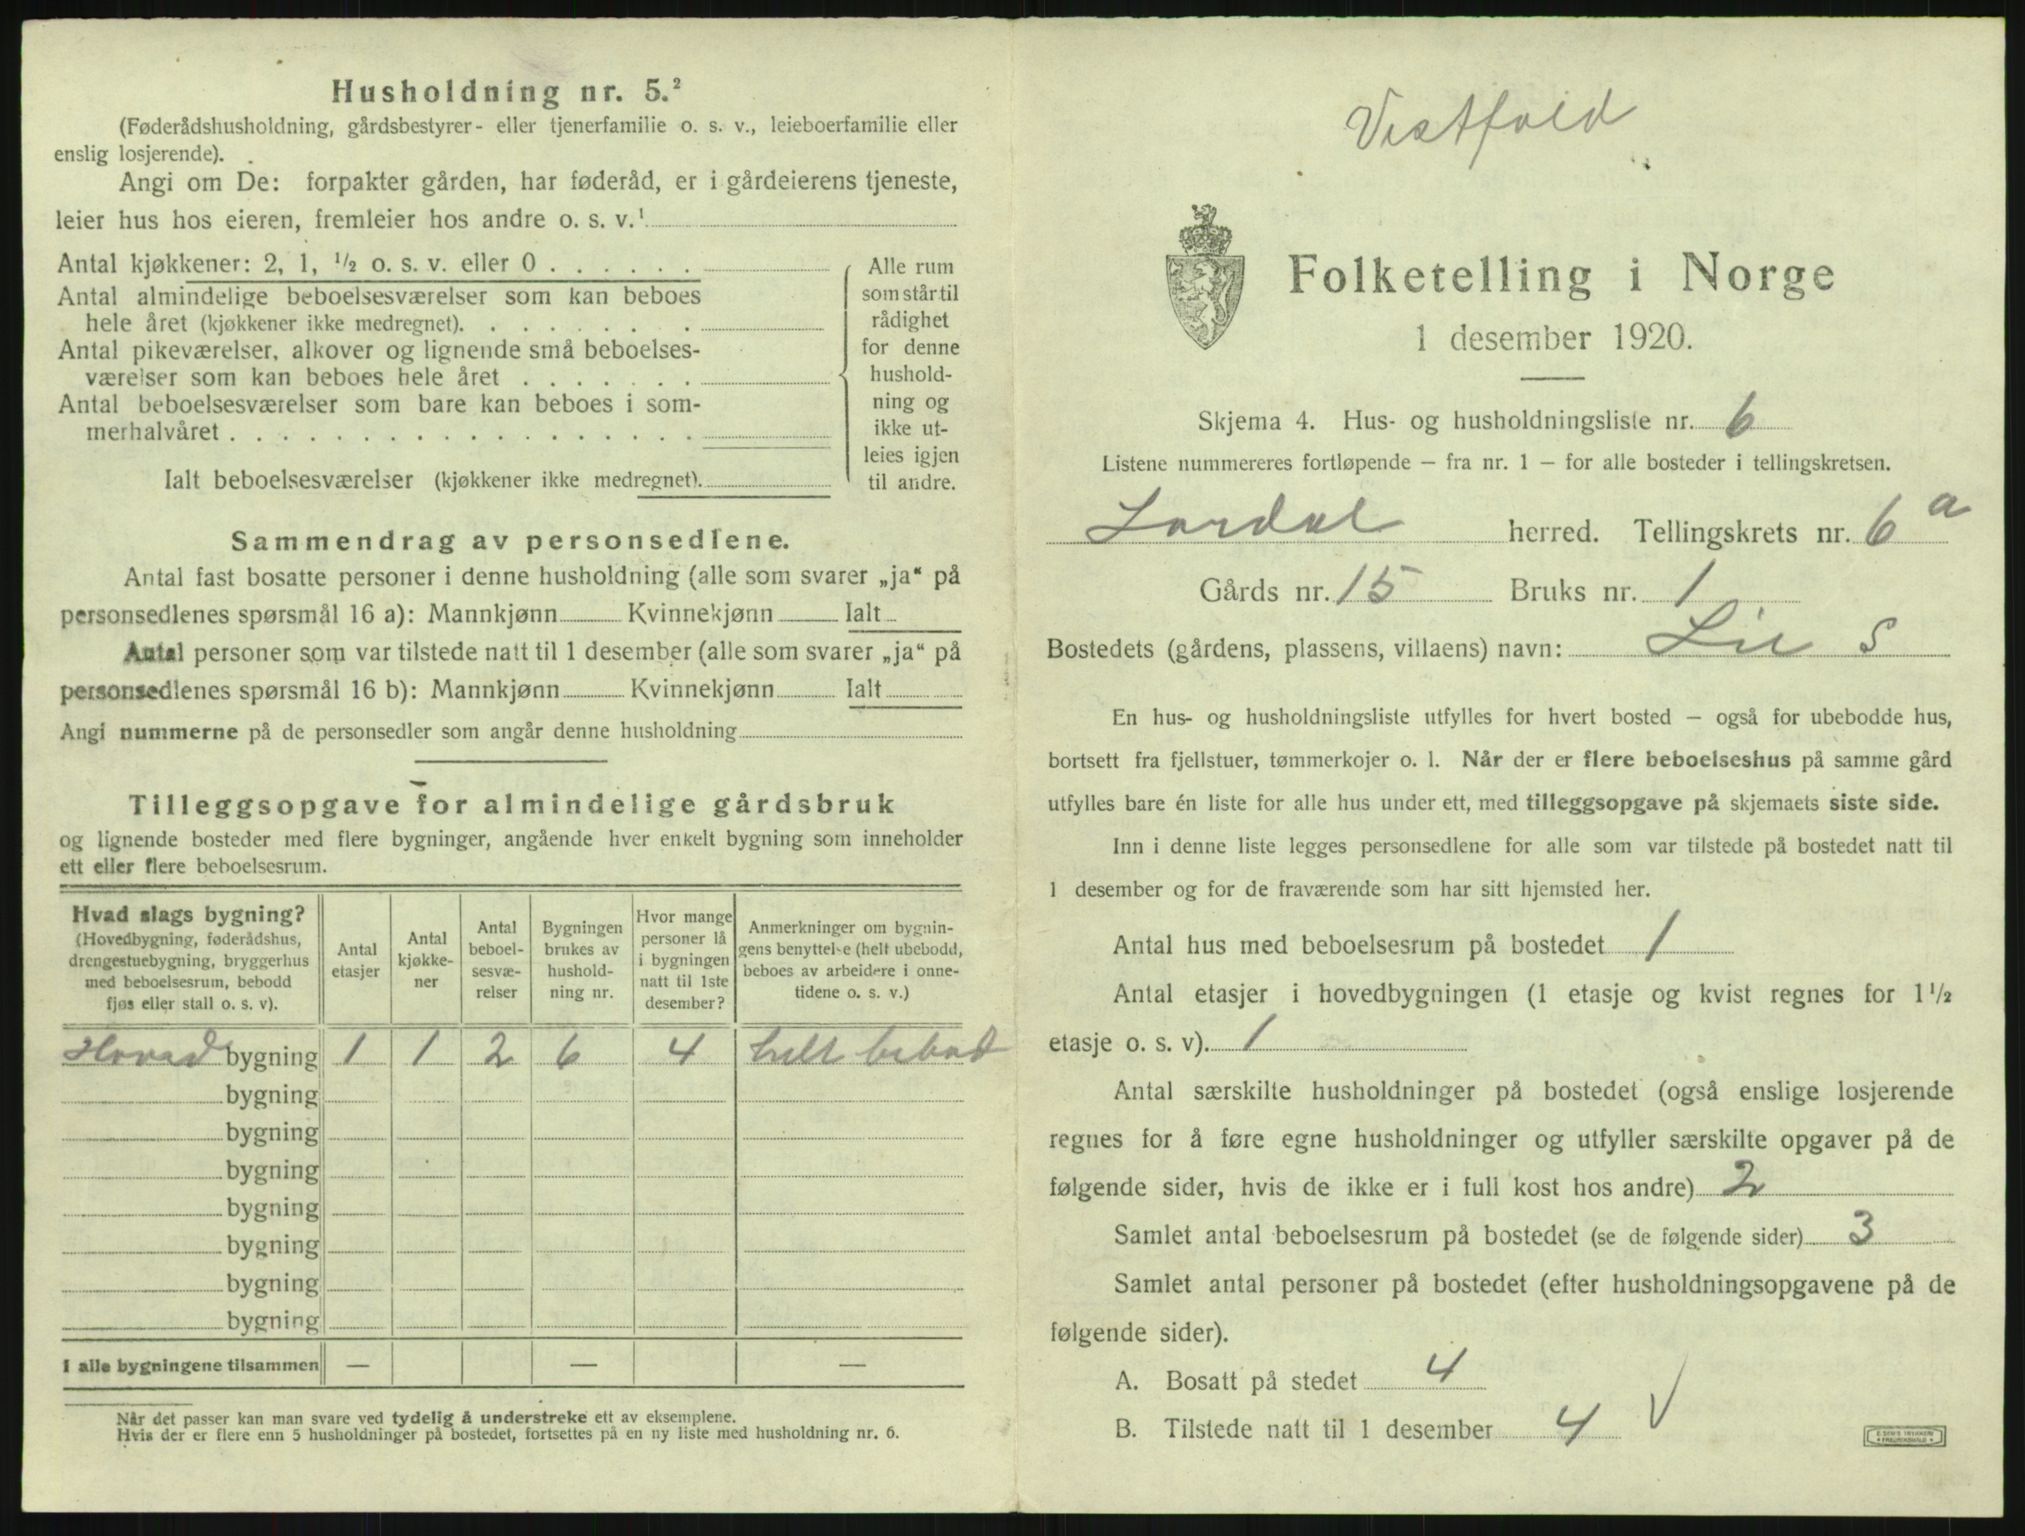 Husholdning nr. 5.²
(Føderådshusholdning, gårdsbestyrer- eller tjenerfamilie o. s. v., leieboerfamilie eller
enslig losjerende).
Angi om De: forpakter gården, har føderåd, er i gårdeierens tjeneste,
leier hus hos eieren, fremleier hos andre o. s. v.¹
Antal kjøkkener: 2, 1, ½ o. s. v. eller 0 . . . . . .
Antal almindelige beboelsesværelser som kan beboes
hele året (kjøkkener ikke medregnet). . . . . . . . .
Antal pikeværelser, alkover og lignende små beboelses-
værelser som kan beboes hele året . . . . . . .
Antal beboelsesværelser som bare kan beboes i som-
merhalvåret . . . . . . . . . . . . . . . . . .
Alle rum
som står til
rådighet
for denne
hushold-
ning og
ikke ut-
leies igjen
til andre.
Ialt beboelsesværelser (kjøkkener ikke medregnet).
Sammendrag av personsedlene.
Antal fast bosatte personer i denne husholdning (alle som svarer „ja“ på
personsedlenes spørsmål 16 a): Mannkjønn Kvinnekjønn Ialt
Antal personer som var tilstede natt til 1 desember (alle som svarer „ja“ på
personsedlenes spørsmål 16 b): Mannkjønn Kvinnekjønn Ialt
Angi nummerne på de personsedler som angår denne husholdning
Tilleggsopgave for almindelige gårdsbruk
og lignende bosteder med flere bygninger, angående hver enkelt bygning som inneholder
ett eller flere beboelsesrum.
Hvad slags bygning?
(Hovedbygning, føderådshus,
drengestuebygning, bryggerhus
med beboelsesrum, bebodd
fjøs eller stall o. s. v).
Antal
etasjer
Antal
kjøkke-
ner
Antal
beboel-
sesvæ-
relser
Bygningen
brukes av
hushold-
ning nr.
Hvor mange
personer lå
i bygningen
natt til 1ste
desember?
Anmerkninger om bygnin-
gens benyttelse (helt ubebodd,
beboes av arbeidere i onne-
tidene o. s. v.)
Hoved bygning 1 1 2 6 4 helt bebod
bygning
bygning
bygning
bygning
bygning
bygning
bygning
I alle bygningene tilsammen — — —
Når det passer kan man svare ved tydelig å understreke ett av eksemplene.
Hvis der er flere enn 5 husholdninger på bostedet, fortsettes på en ny liste med husholdning nr. 6.
Vestfold
Folketelling i Norge
1 desember 1920.
Skjema 4. Hus- og husholdningsliste nr. 6
Listene nummereres fortløpende — fra nr. 1 — for alle bosteder i tellingskretsen.
Lardal herred. Tellingskrets nr. 6 a
Gårds nr. 15 Bruks nr. 1
Bostedets (gårdens, plassens, villaens) navn: Lie S
En hus- og husholdningsliste utfylles for hvert bosted — også for ubebodde hus,
bortsett fra fjellstuer, tømmerkojer o. l. Når der er flere beboelseshus på samme gård
utfylles bare én liste for alle hus under ett, med tilleggsopgave på skjemaets siste side.
Inn i denne liste legges personsedlene for alle som var tilstede på bostedet natt til
1 desember og for de fraværende som har sitt hjemsted her.
Antal hus med beboelsesrum på bostedet 1
Antal etasjer i hovedbygningen (1 etasje og kvist regnes for 1½
etasje o. s. v). 1
Antal særskilte husholdninger på bostedet (også enslige losjerende
regnes for å føre egne husholdninger og utfyller særskilte opgaver på de
følgende sider, hvis de ikke er i full kost hos andre) 2
Samlet antal beboelsesrum på bostedet (se de følgende sider) 3
Samlet antal personer på bostedet (efter husholdningsopgavene på de
følgende sider).
A. Bosatt på stedet 4
B. Tilstede natt til 1 desember 4